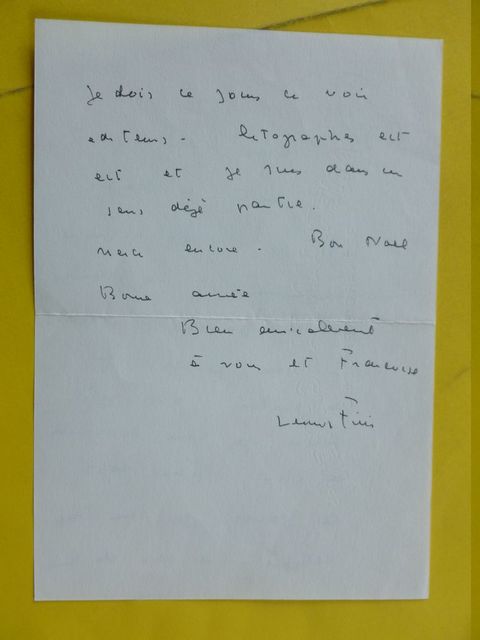 Je dois ce jours ce voir
editeurs - litographes ect
ect et je suis dans un
sens déjè partie.
merci encore. Bon Noel
Bonne année
Bien amicalement
à vous et Francoise
Leonor Fini